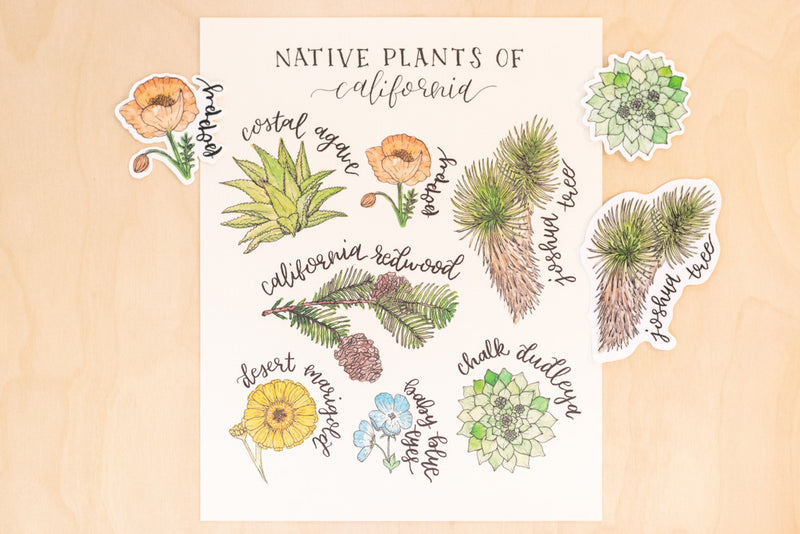 NATIVE PLANTS OF
california
poppy
costal agave
poppy
joshua tree
joshua tree
california redwood
desert marigold
baby blue eyes
chalk dudleya